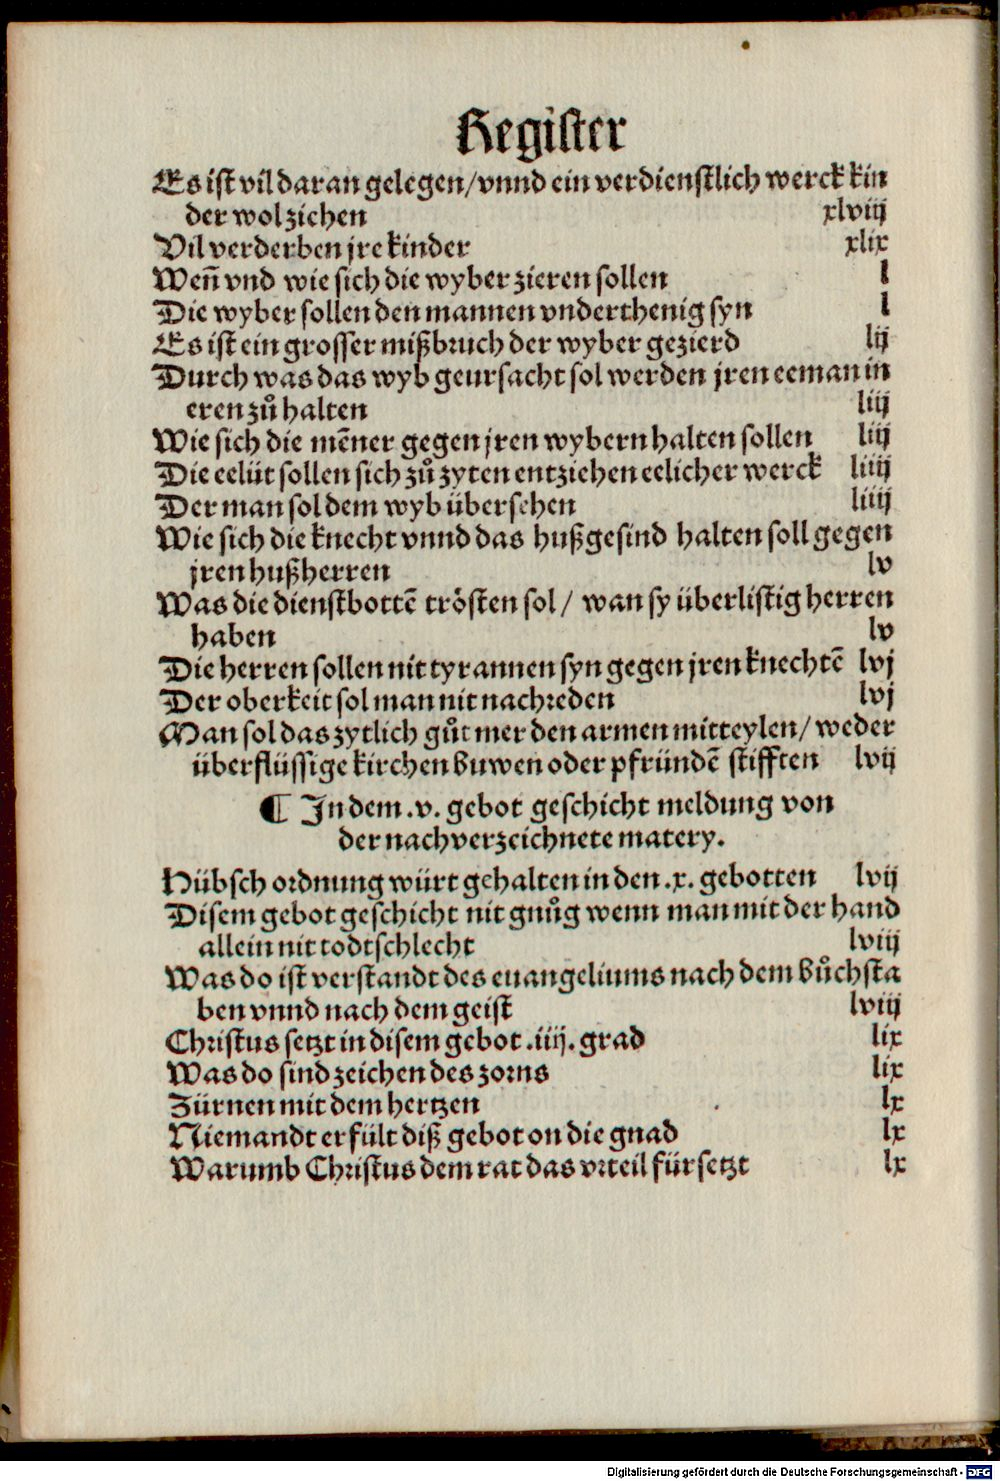 Register
Es ist vil daran gelegen/vnnd ein verdienstlich werck kin
der wol ziehen xlviij
Vil verderben jre kinder xlix
Weñ vnd wie sich die wyber zieren sollen l
Die wyber sollen den mannen vnderthenig syn l
Es ist ein grosser mißbruch der wyber gezierd lij
Durch was das wyb geursacht sol werden jren eeman in
eren zů halten liij
Wie sich die mēner gegen jren wybern halten sollen liij
Die eelüt sollen sich zů zyten entziehen eelicher werck liiij
Der man sol dem wyb übersehen liiij
Wie sich die knecht vnnd das hußgesind halten soll gegen
jren hußherren lv
Was die dienstbottē trösten sol/ wan sy überlistig herren
haben lv
Die herren sollen nit tyrannen syn gegen jren knechtē lvj
Der oberkeit sol man nit nachreden lvj
Man sol das zytlich gůt mer den armen mitteylen/ weder
überflüssige kirchen buwen oder pfründē stifften lvij
¶ In dem .v. gebot geschicht meldung von
der nachverzeichnete matery.
Hübsch ordnung würt gehalten in den .x. gebotten lvij
Disem gebot geschicht nit gnůg wenn man mit der hand
allein nit todtschlecht lviij
Was do ist verstandt des euangeliums nach dem bůchsta
ben vnnd nach dem geist lviij
Christus setzt in disem gebot .iiij. grad lix
Was do sind zeichen des zorns lix
Zürnen mit dem hertzen lx
Niemandt erfült diß gebot on die gnad lx
Warumb Christus dem rat das vrteil fürsetzt lx
Digitalisierung gefördert durch die Deutsche Forschungsgemeinschaft - DFG